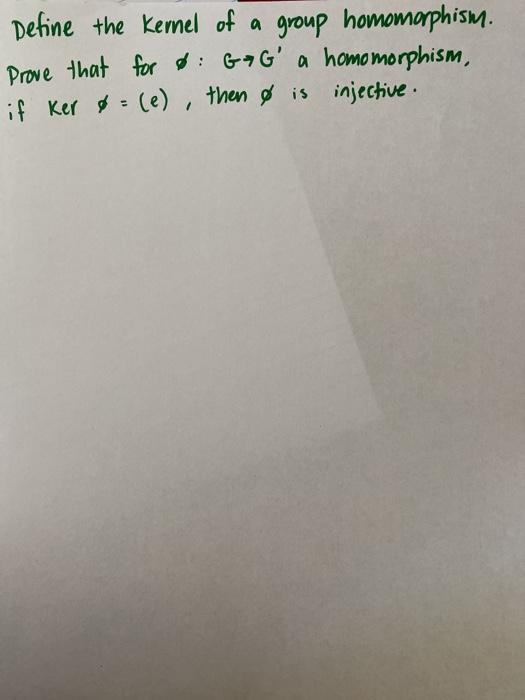 Define the Kernel of a group homomorphism.
Prove that for ø : G→G' a homomorphism,
if Ker ø = (e) , then ø is injective.